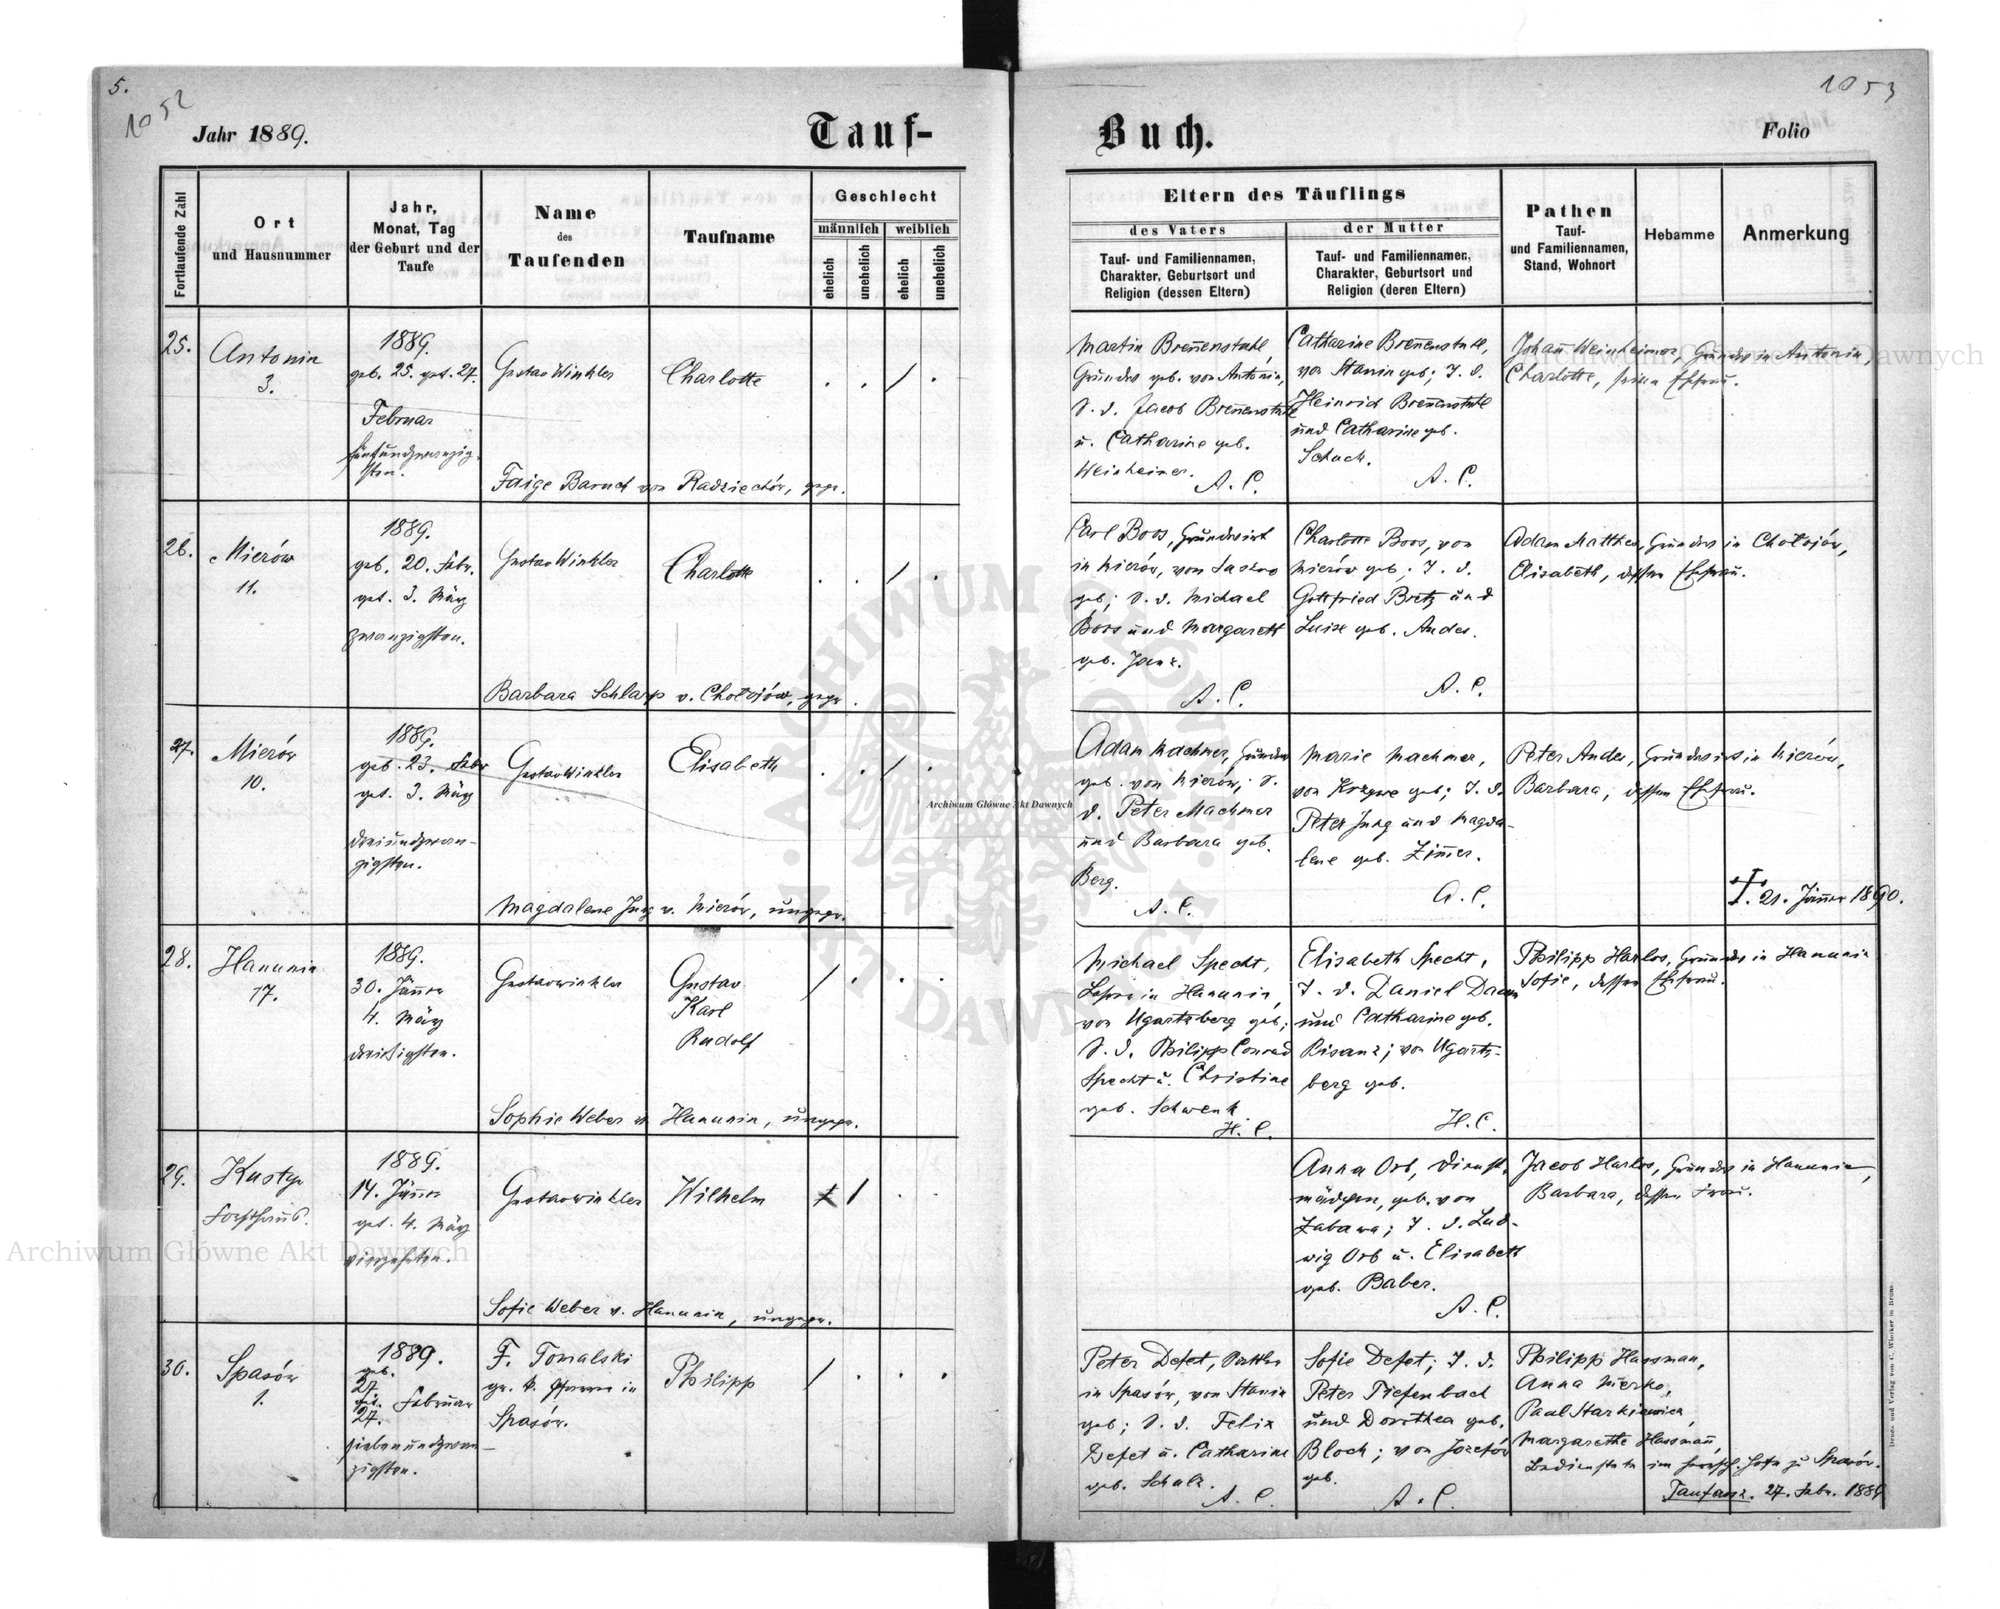 5.
1052
Jahr 1889.
Tauf-
Fortlaufende Zahl
Ort
und Hausnummer
Jahr,
Monat, Tag
der Geburt und der
Taufe
Name
des
Taufenden
Taufname
Geschlecht
männlich
weiblich
ehelich
unehelich
ehelich
unehelich
25.
Antonin
3.
1889.
geb. 25. get. 27.
Februar
fünfundzwanzig-
sten.
Gustav Winkler
Charlotte
Faige Baruch von Radziechów, gepr.
26.
Mierów
11.
1889.
geb. 20. Febr.
get. 3. März
zwanzigsten.
Gustav Winkler
Charlotte
Barbara Schlarp v. Chołojów, gepr.
27.
Mierów
10.
1889.
geb. 23. Febr
get. 3. März
dreiundzwan-
zigsten.
Gustav Winkler
Elisabeth
Magdalene Jung v. Mierów, ungepr.
28.
Hanunin
17.
1889.
30. Jänner
4. März
dreißigsten.
Gustav Winkler
Gustav
Karl
Rudolf
Sophie Weber v. Hanunin, ungepr.
29.
Kustyn
Forsthaus.
1889.
14. Jänner
get. 4. März
vierzehnten.
Gustav Winkler
Wilhelm
Sofie Weber v. Hanunin, ungepr.
30.
Spasów
1.
1889.
geb.
27.
get. Februar
27.
siebenundzwan-
zigsten.
F. Tomalski
gr. k. Pfarrer in
Spasów.
Philipp
1053
Buch.
Folio
Eltern des Täuflings
des Vaters
der Mutter
Tauf- und Familiennamen,
Charakter, Geburtsort und
Religion (dessen Eltern)
Tauf- und Familiennamen,
Charakter, Geburtsort und
Religion (deren Eltern)
Pathen
Tauf-
und Familiennamen,
Stand, Wohnort
Hebamme
Anmerkung
Martin Breñenstuhl,
Grundw. geb. von Antonin,
S. d. Jacob Breñenstuhl
u. Catharine geb.
Weinheimer.
A. C.
Catharine Breñenstuhl,
von Stanin geb; T. d.
Heinrich Breñenstuhl
und Catharine geb.
Schuck.
A. C.
Johañ Weinheimer, Grundw in Antonin,
Charlotte, seine Ehefrau.
Carl Boos, Grundwirt
in Mierów, von
geb; S. d. Michael
Boos und Margareth
geb. Janz.
A. C.
Charlotte Boos, von
Mierów geb; T. d.
Gottfried Bretz und
Luise geb. Andes.
A. C.
Adam Matthes, Grundw in Chołojów,
Elisabeth, dessen Ehefrau.
Adam Machmer, Grundw
geb. von Mierów; S.
d. Peter Machmer
und Barbara geb.
Berg.
A. C.
Marie Machmer,
von Krzywe geb; T. d.
Peter Jung und Magda-
lene geb. Zim̃er.
A. C.
Peter Andes, Grundwirt in Mierów,
Barbara, dessen Ehefrau.
†. 21. Jänner 1890.
Michael Specht,
Lehrer in Hanunin,
von Ugartsberg geb;
S. d. Philipp Conrad
Specht u. Christine
geb. Schwenk.
H. C.
Elisabeth Specht,
T. d. Daniel Daum
und Catharine geb.
Risanz; von Ugarts-
berg geb.
H. C.
Philipp Harlos, Grundw in Hanunin
Sofie, dessen Ehefrau.
Anna Orb, Dienst-
mädchen, geb. von
Zabawa; T. d. Lud-
wig Orb u. Elisabeth
geb. Baber.
A. C.
Jacob Harlos, Grundw in Hanunin,
Barbara, dessen Frau.
Peter Defet,
in Spasów, von Stanin
geb; S. d. Felix
Defet u. Catharine
geb. Schulz.
A. C.
Sofie Defet; T. d.
Peter Tiefenbach
und Dorothea geb.
Bloch; von Józefów
geb.
A. C.
Philipp Hassman,
Anna Mierko,
Paul Harkiewicz,
Margarethe Hassmañ,
Bedienstete im herrsch. Hofe zu Spasów.
Taufanz. 27. Febr. 1889
Druck und Verlag von C. Winiker in Brünn.
Archiwum Główne Akt Dawnych
Archiwum Główne Akt Dawnych
Archiwum Główne Akt Dawnych
ARCHIWUM GŁÓWNE AKT DAWNYCH